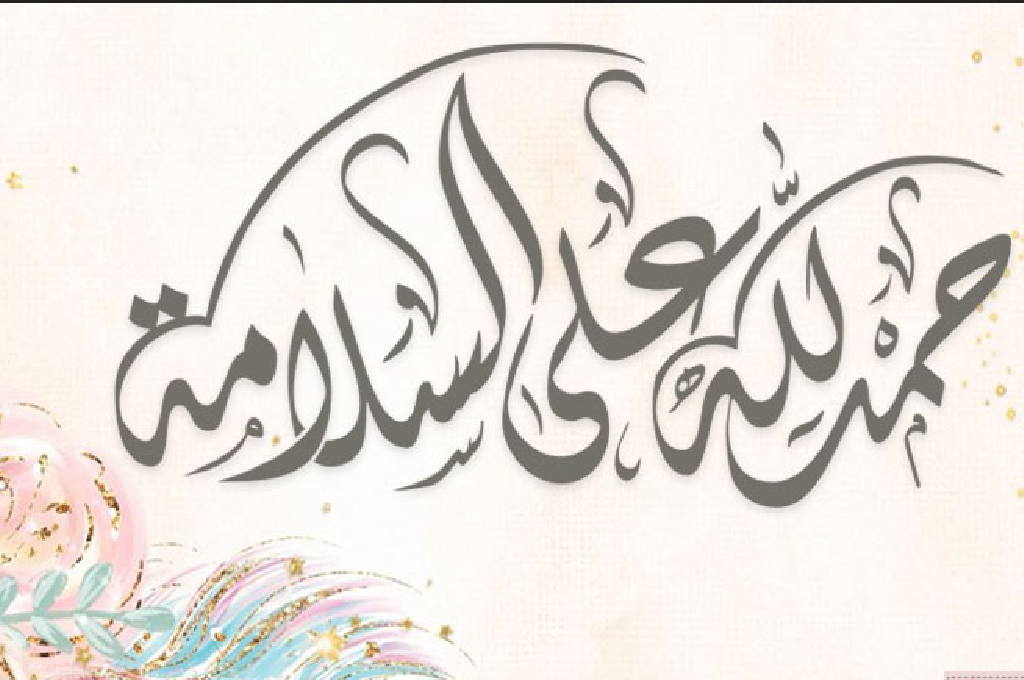 حمد لله على السلامة